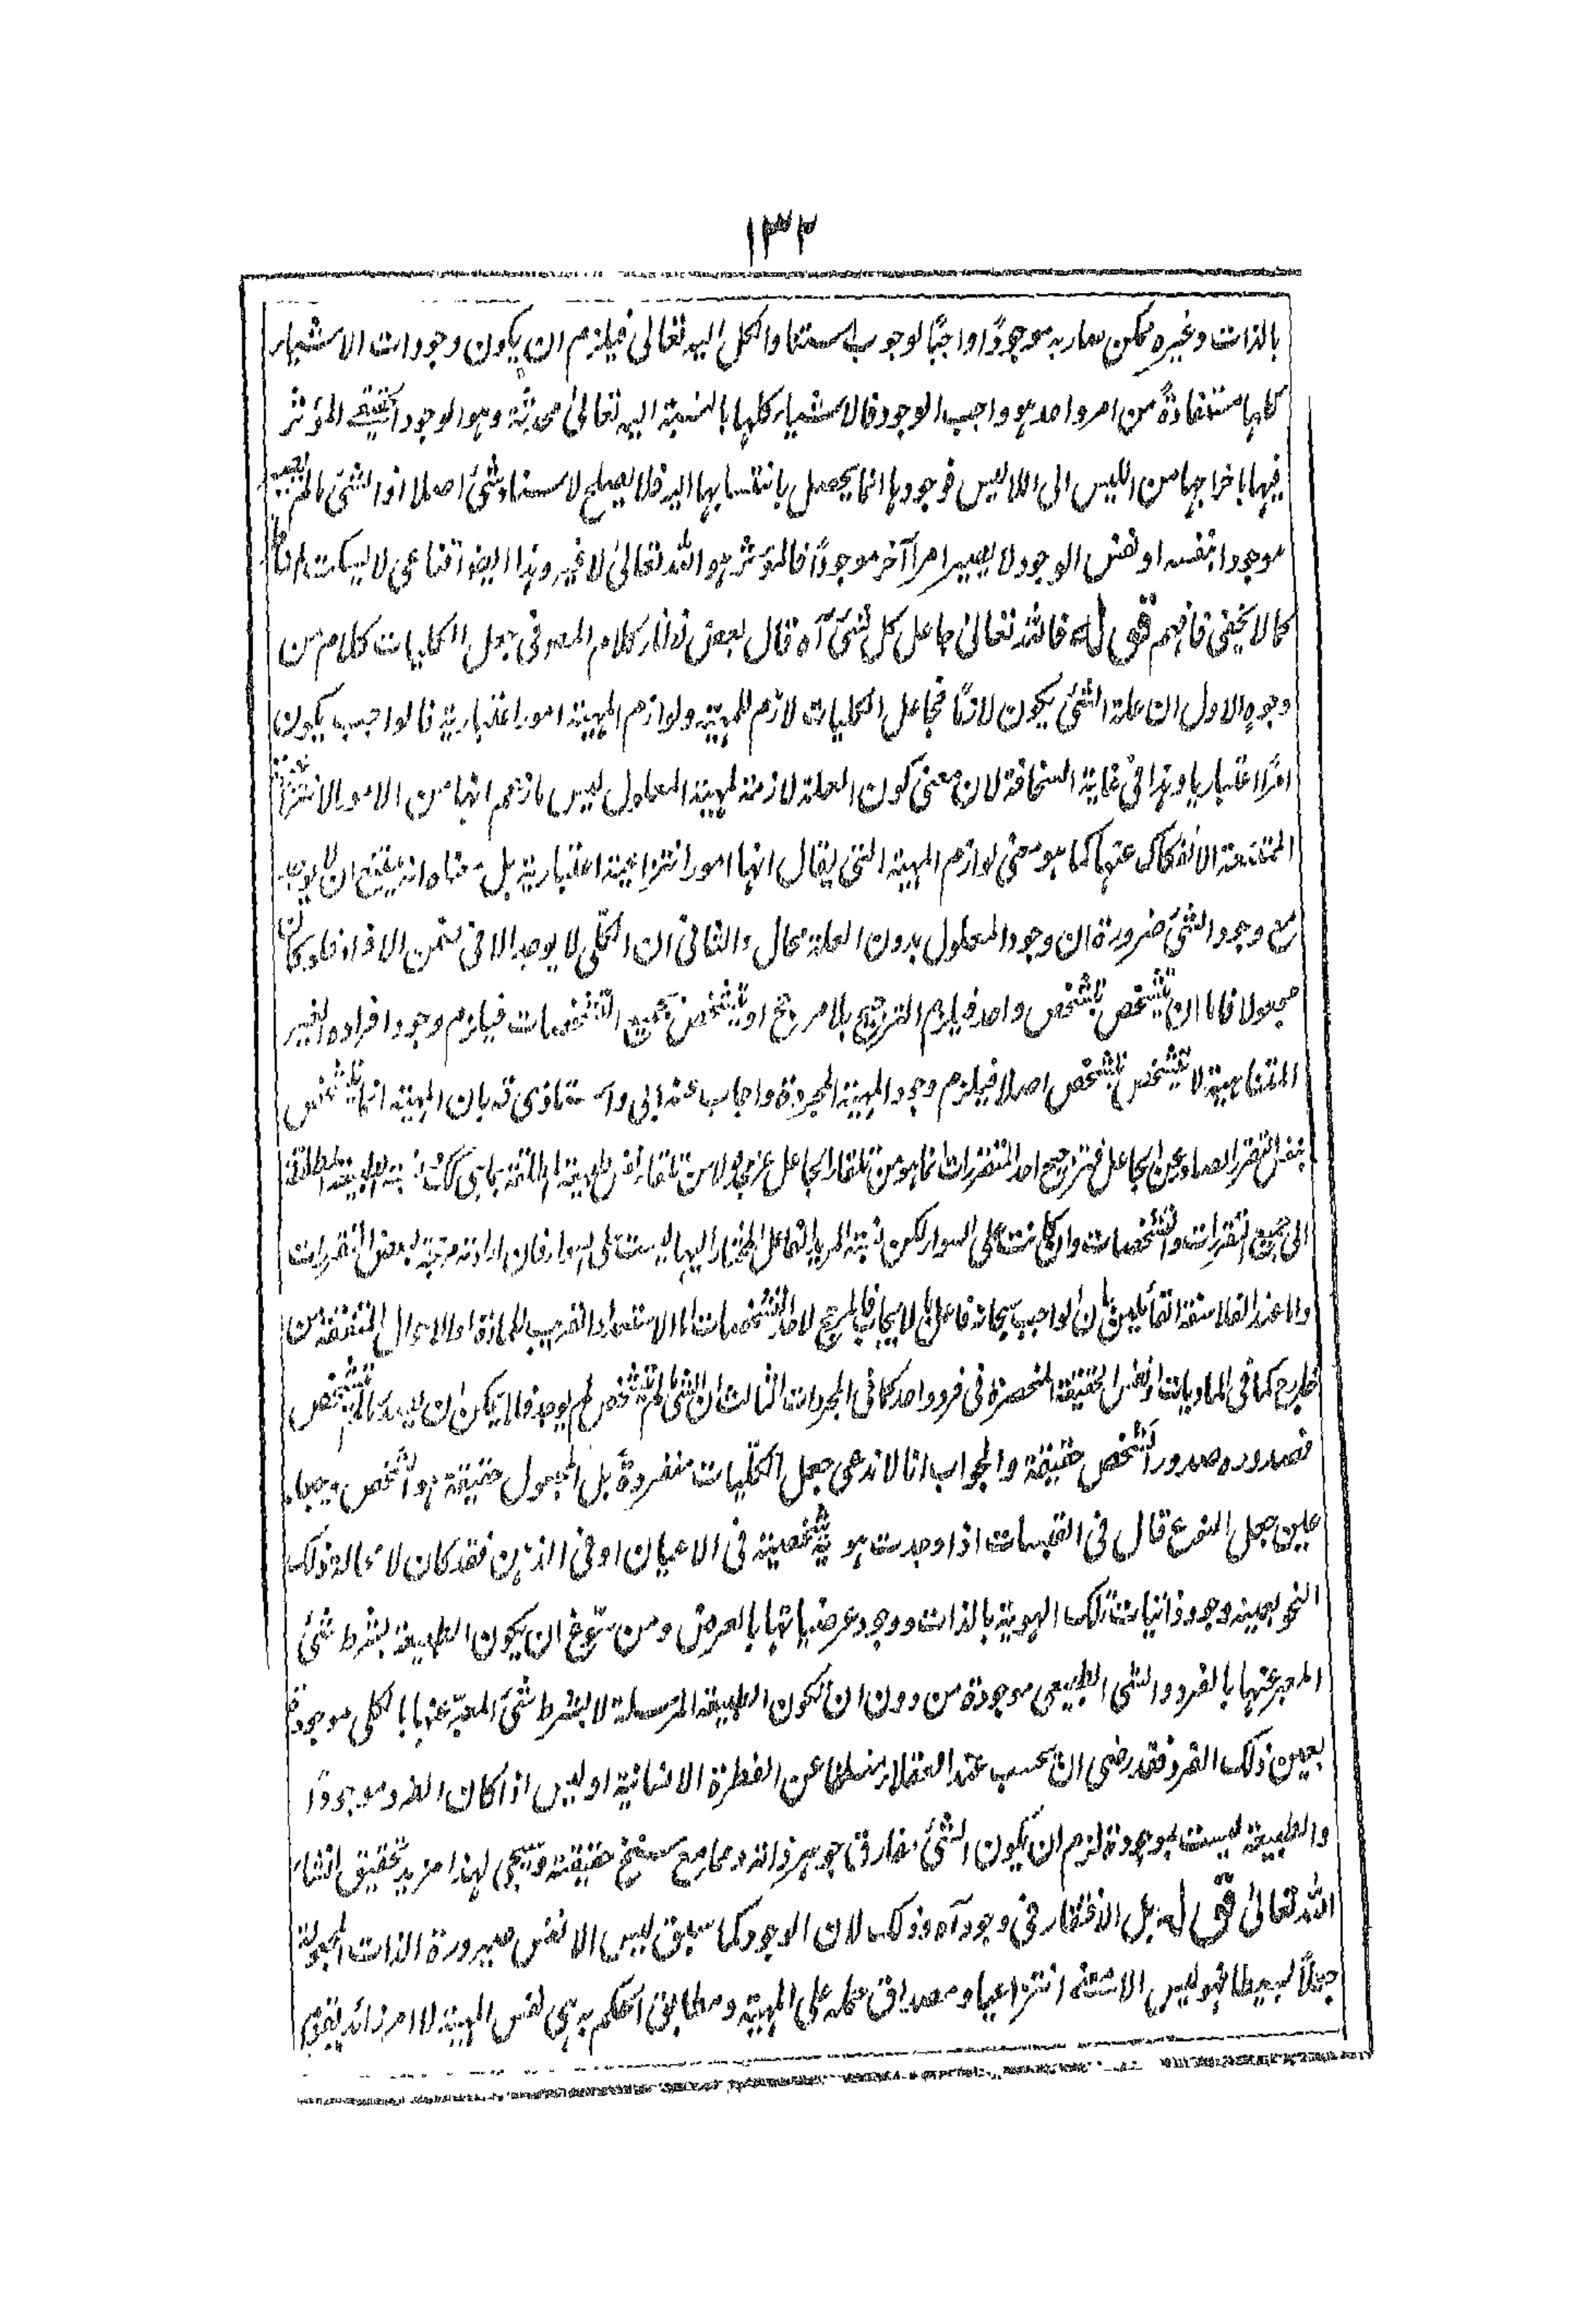 ١٣٢
بالذات وغيره ممكن صار به موجودًا واجبًا لوجوب استناد الكل اليه تعالى فيلزم ان يكون وجودات الاشياء
كلها مستفادةً من امر واحد هو واجب الوجود فالاشياء كلها بالنسبة اليه تعالى محدثة وهو الوجود الحقيقى المؤثر
فيها باخراجها من الليس الى اللاليس فوجودها انما يحصل بانتسابها اليه فلا يصلح لاستناد شئ اصلا اذ الشئ مالم يصر
موجودا بنفسه او نفس الوجود لا يصير امرا آخر موجودًا فالمؤثر هو الله تعالى لا غير وهذا ايضا اقناعى لا يسكت
كما لا يخفى فافهم قوله فالله تعالى جاعل كل شئ آه قال بعض نظار كلام المعروفى جعل الكليات كلام من
وجوهٍ الاول ان علة الشئ يكون لازمًا فجاعل الكليات لازم للمهية ولوازم المهية امور اعتبارية فالواجب يكون
امرًا اعتباريا وهذا فى غاية السخافة لان معنى كون العلة لازمة لمهية المعلول ليس ما زعم انها من الامور الانتزاعية
الممتنعة الانفكاك عنها كما هو معنى لوازم المهية التى يقال انها امور انتزاعية اعتبارية بل معناه انه يمتنع ان لا يوجد
مع وجود الشئ ضرورة ان وجود المعلول بدون العلة محال والثانى ان الكلى لا يوجد الا فى ضمن الافراد فلو كان
مجعولا فاما ان يتشخص بتشخص واحد فيلزم الترجيح بلا مرجح او يتشخص بجميع التشخصات فيلزم وجود افراده الغير
المتناهية او لا يتشخص بتشخص اصلا فيلزم وجود المهية المجردة واجاب عنه ابى واستاذى قه بان المهية انما يتشخص
بنفس التقرر الصادر عن الجاعل فترجيح احد التقررات انما هو من تلقاء الجاعل عز مجده لا من تلقاء نفس المهية المطلقة بما هى كك نسبة الطبيعة المطلقة
الى جميع التقررات والتشخصات وان كانت على السواء لكن نسبة المريد الفاعل المختار اليها ليست على السواء فان ارادته مرجحة لبعض التقررات
واما عند الفلاسفة القائلين بان الواجب سبحانه فاعل بالايجاب فالمرجح لاحد التشخصات اما الاستعداد القريب للمادة او الاحوال المتفقة من
خارج كما فى الماديات او نفس الحقيقة المنحصرة فى فرد واحد كما فى المجردات الثالث ان الشئ مالم يتشخص لم يوجد فلا يمكن ان يصدر مالم يتشخص
فصدوره صدور الشخص حقيقة والجواب انا لا ندعى جعل الكليات منفردةً بل المجعول حقيقة هو الشخص وجعله
عين جعل النوع قال فى القبسات اذا وجدت هوية شخصية فى الاعيان او فى الذهن فقد كان لا محالة ذلك
النحو بعينه وجود ذاتيات تلك الهوية بالذات ووجود عرضياتها بالعرض ومن سوّغ ان يكون الطبيعة بشرط شئ
المعبر عنها بالفرد والشئ الطبيعى موجودة من دون ان تكون الطبيعة المرسلة لا بشرط شئ المعبّر عنها بالكلى موجودة
بعين ذلك الفرد فقد رضى ان يحسب عند العقلاء منسلخا عن الفطرة الانسانية او ليس اذا كان الفرد موجودًا
والطبيعة ليست بموجودة لزم ان يكون الشئ مفارق جوهر ذاته ومجامع سنخ حقيقته وسيجئ لهذا مزيد تحقيق انشاء
الله تعالى قوله بل الافتقار فى وجود آه وذلك لان الوجود كما سبق ليس الا نفس صيرورة الذات المجعولة
جعلًا بسيطا فهو ليس الا معنى انتزاعيا ومصداق حمله على المهية ومطابق الحكم به هى نفس المهية لا امر زائد يقوم